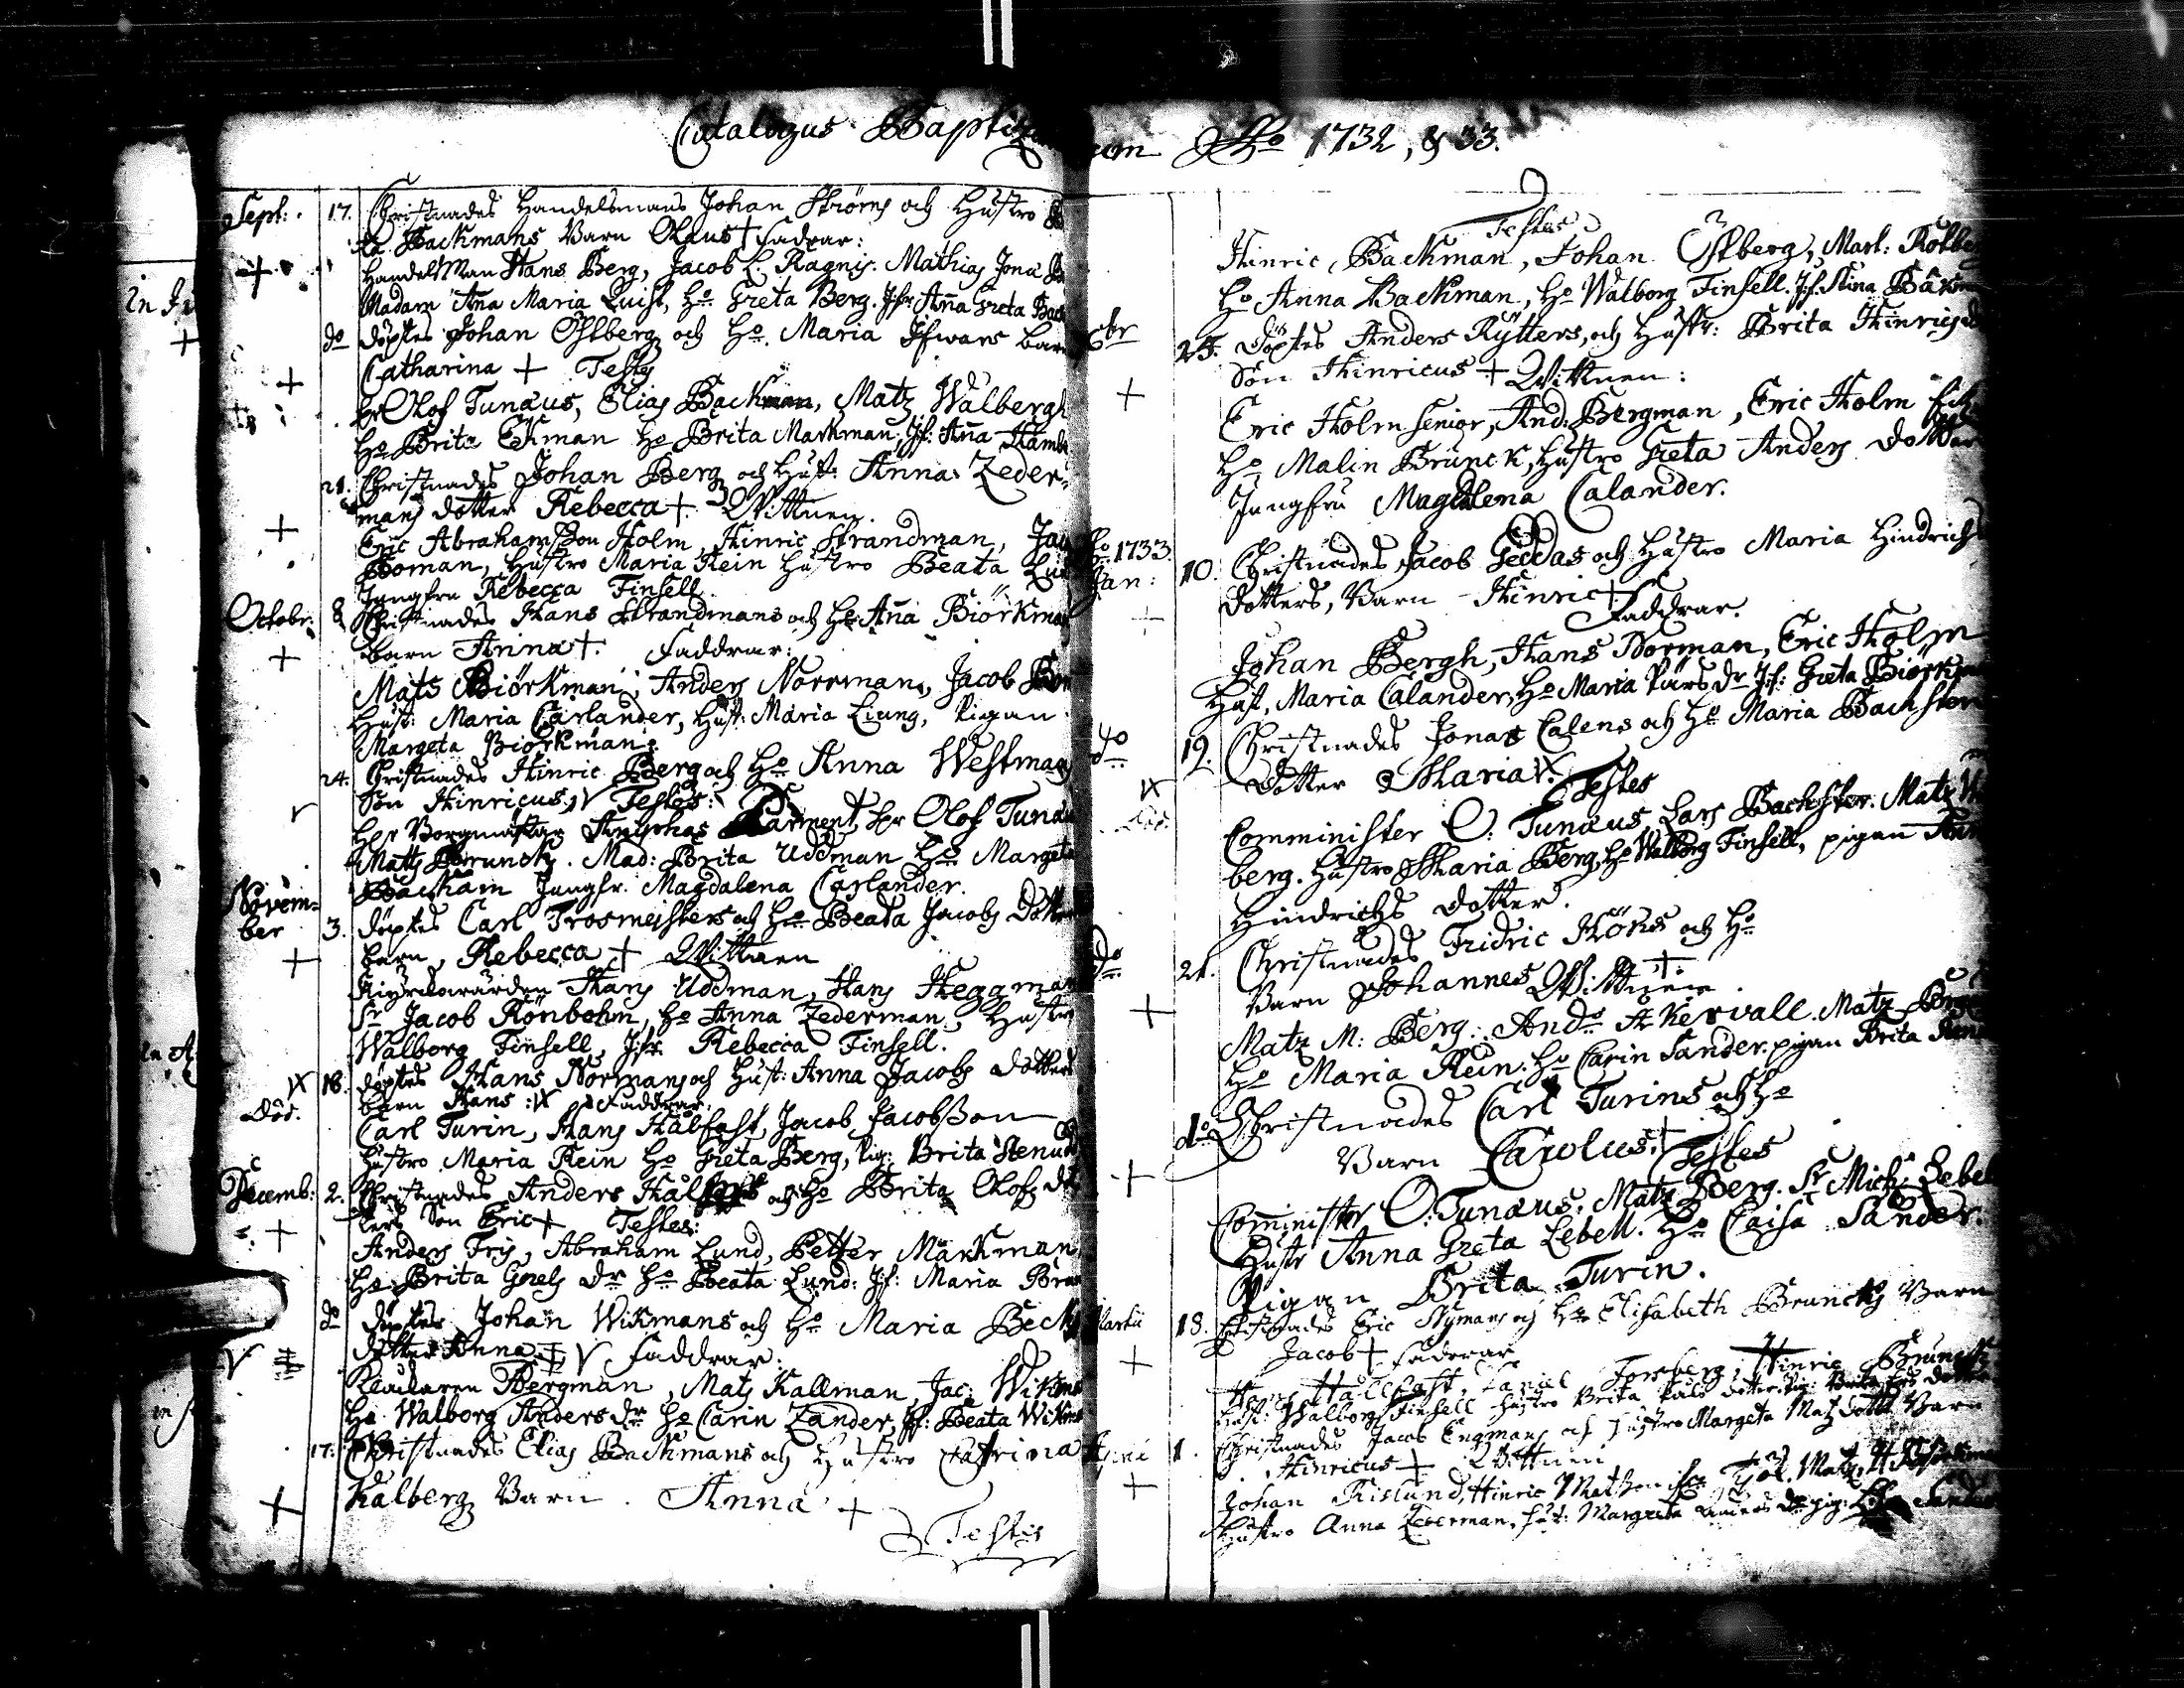 Catalogus Baptiza
Sept: 17. Christnades Handelsmans Johan Ströms och Hustro
Backmans Barn Olaus + Fadrar:
HandelsMan Hans Berg, Jacob L. Ragnis. Mathias Jona
Madam Aña Maria Luist, Ho Greta Berg. Jfr Aña Greta Back
do döptes Johan Östberg och Ho. Maria Ifwars barn
Catharina + Testes
hr Olof Tunæus, Elias Backman, Matz Walbergh
Ho Brita Ekman Ho Brita Markman. Jf: Aña
21. Christnades Johan Berg och Hust: Anna Zeder-
mans dotter Rebecca +. Wittnen.
Eric Abrahamsson Holm, Hinric Strandman, Jac
Boman, Hustro Maria Rein Hustro Beata
Jungfru Rebecca Finsell.
Octobr: 8 Christnades Hans Strandmans och Ho Aña Biörkman
barn Anna +. Faddrar:
Mats Biörkman, Anders Norrman, Jacob
Hust: Maria Carlander, Hust: Maria Liung, Pigan
Margeta Biörkman.
24. Christnades Hinric Berg och Ho Anna Westmans
Son Hinricus, V Testes:
Hr Borgmästar Parment, hr Olof Tunæus
Matts Bruncks. Mad: Brita Uddman Ho Margeta
Backman Jungfr. Magdalena Carlander.
Novem-
ber 3. döptes Carl Trosmeisters och Ho Beata Jacobs dotters
barn, Rebecca + Wittnen
Kiyrckowärden Hans Uddman, Hans Heggman
Sr Jacob Rönbohm, Ho Anna Zederman, Hustro
Walborg Finsell, Jfr Rebecca Finsell.
18. döptes Hans Normans och Hust: Anna Jacobs dotters
död. barn Hans : Faddrar.
Carl Turin, Hans Hålfast, Jacob Jacobsson
Hustro Maria Rein Ho Greta Berg, Pig: Brita
Decemb: 2. Christnades Anders och Ho Brita Olofs dot
ters Son Eric + Testes:
Anders Fris, Abraham Lund, Petter Markman
Ho Brita Grels dr Ho Beata Lund: Jf: Maria
do döptes Johan Wikmans och Ho Maria Beck
dotter Anna V Faddrar:
Klockaren Bergman, Mats Kallman, Jac: Wikman
Ho Walborg Anders dr Ho Carin Zander, Jf: Beata Wikman
17. Christnades Elias Backmans och Hustro Catrina
Kalberg Barn. Anna +
Testes
rum Ao 1732, & 33.
Testes
Hinric Backman, Johan Östberg, Mart: Rotbe
Ho Anna Backman, Ho Walborg Finsell. Jf. Stina
Xbr 25. döptes Anders Rytters, och Hustr: Brita Hinrics
Son Hinricus + Wittnen:
Eric Holm Senior, And: Bergman, Eric Holm
Ho Malin Brunck, Hustro Greta Anders dotter
Jungfru Magdalena Calander.
Ao 1733.
Jan: 10. Christnades Jacob Geddas och Hustro Maria Hindrichs
dotters, Barn Hinric +
Faddrar.
Johan Bergh, Hans Norman, Eric Holm
Hust, Maria Calander, Ho Maria Pärs dr Jf: Greta Biörkman
do 19. Christnades Jonas Calens och Ho Maria Bachster
dotter Maria.
Testes
Comminister O: Tunæus Lars Bachster. Matz
berg. Hustro Maria Berg, Ho Walborg Finsell, pigan
Hindrichs dotter.
do 21. Christnades Fridric Höks och Ho
Barn Johannes +. Wittnen
Matz M: Berg: Ando Akervall. Matz
Ho Maria Rein: Ho Carin Sander. pigan Brita
do Christnades Carl Turins och Ho
Barn Carolus + Testes
Comminister O: Tunæus, Matz Berg. Sr Mich: Lebel
Hustr Anna Greta Lebell. Ho Caisa Sander.
Pigan Brita Turin.
Martii 18. Christnades Eric Nymans och Ho Elisabeth Bruncks Barn
Jacob + Fadrar
Hans Hallfast, Forsberg, Hinric Brunck
Hust: Walborg Finsell Hustro Brita Påls dotter. Pig: Brita
1. Christnades Jacob Engmans och Hustro Margeta Matz dott Barn
Hinricus + Wittnen
Johan Rislund, Hinric Matzon Matz
Hustro Anna Zeerman, Hust: Margreta Anders dr pig: